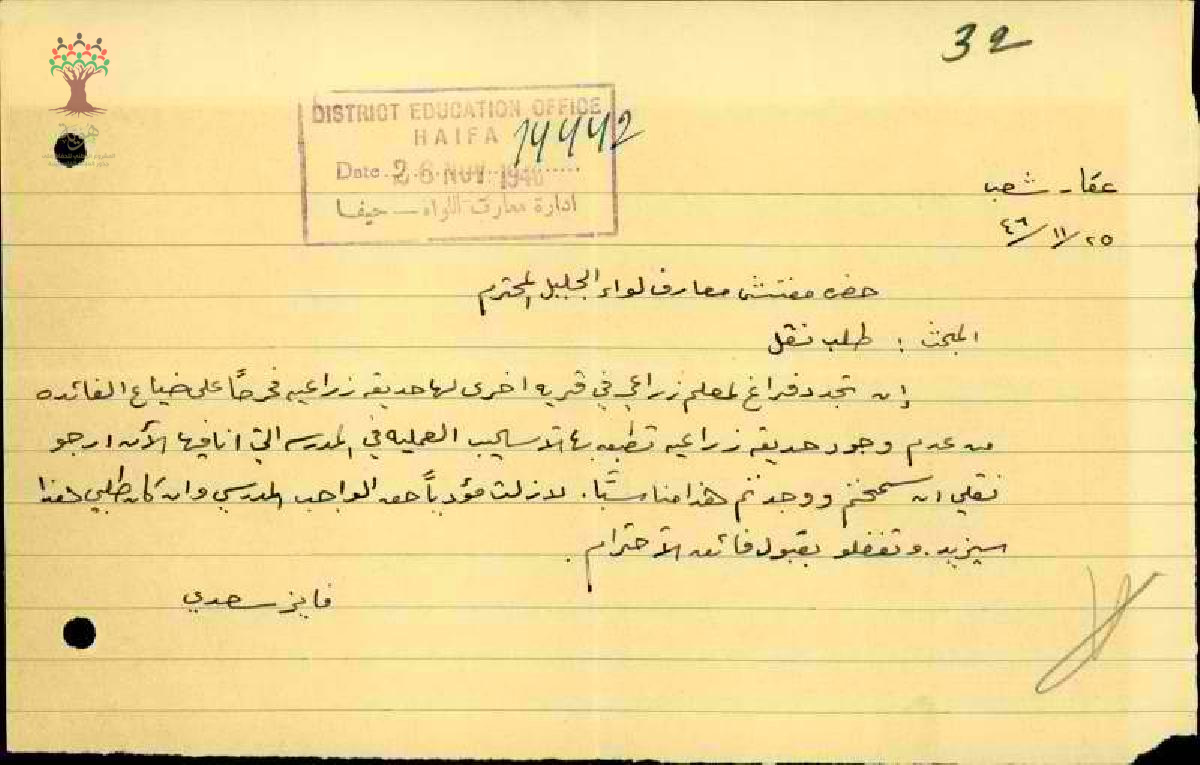 32
DISTRICT EDUCATION OFFICE
HAIFA
14442
Date 26 NOV 1946
ادارة معارف اللواء — حيفا
هوية
عكا - شعب
٢٥/١١/٤٦
حضرة مفتش معارف لواء الجليل المحترم
المبحث : طلب نقل
إن تجدد فراغ لمعلم زراعي في قريه اخرى لها حديقه زراعيه فحرصًا على ضياع الفائده
من عدم وجود حديقه زراعيه تطبق بها الاساليب العمليه في المدرسه التي انا فيها الآن ارجو
نقلي ان سمحتم ووجدتم هذا مناسبًا. لا زلت مؤديًا حق الواجب المدرسي وان كان طلبي هذا
سيزيد. وتفضلو بقبول فائق الاحترام.
فايز سعدي